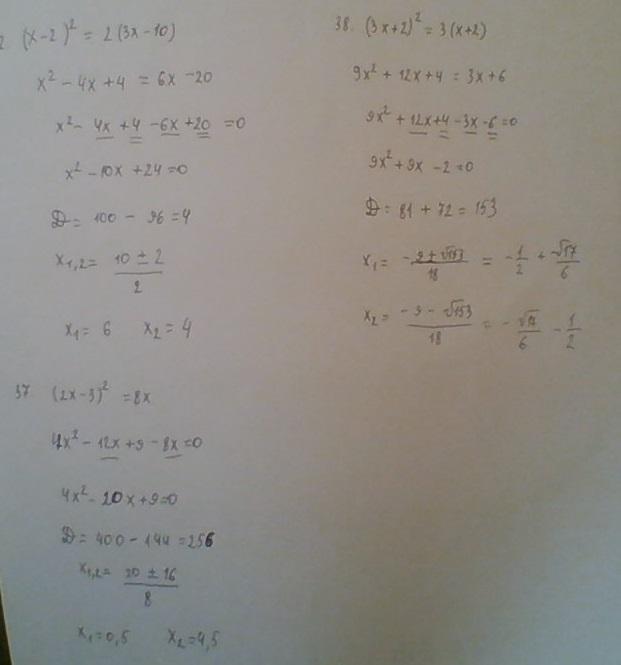 2 (x-2)² = 2(3x-10)
x² - 4x + 4 = 6x - 20
x² - 4x + 4 - 6x + 20 = 0
x² - 10x + 24 = 0
D = 100 - 96 = 4
x₁,₂ = (10 ± 2)/2
x₁ = 6 x₂ = 4
37 (2x-3)² = 8x
4x² - 12x + 9 - 8x = 0
4x² - 20x + 9 = 0
D = 400 - 144 = 256
x₁,₂ = (20 ± 16)/8
x₁ = 0,5 x₂ = 4,5
38. (3x+2)² = 3(x+2)
9x² + 12x + 4 = 3x + 6
9x² + 12x + 4 - 3x - 6 = 0
9x² + 9x - 2 = 0
D = 81 + 72 = 153
x₁ = (-9 + √153)/18 = -1/2 + √17/6
x₂ = (-9 - √153)/18 = -√17/6 - 1/2